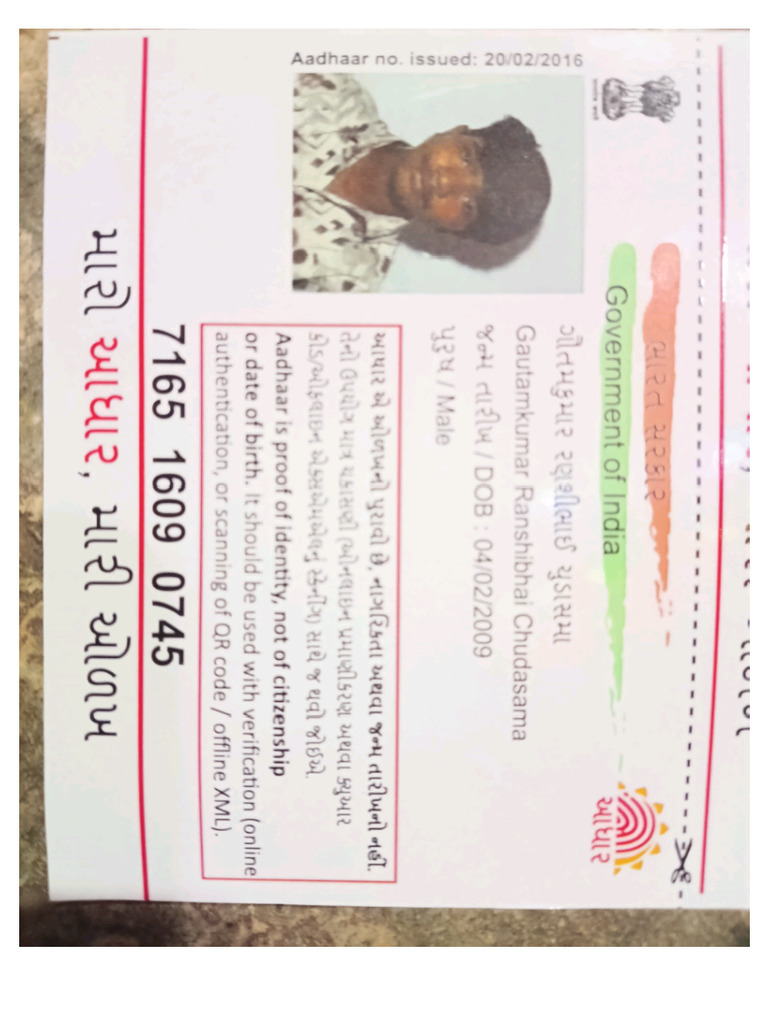 ભારત સરકાર
Government of India
Aadhaar no. issued: 20/02/2016
ગૌતમકુમાર રણશીભાઈ ચુડાસમા
Gautamkumar Ranshibhai Chudasama
જન્મ તારીખ / DOB : 04/02/2009
પુરુષ / Male
આધાર
આધાર એ ઓળખનો પુરાવો છે, નાગરિકતા અથવા જન્મ તારીખનો નહીં.
તેનો ઉપયોગ માત્ર ચકાસણી (ઓનલાઇન પ્રમાણીકરણ અથવા ક્યુઆર
કોડ/ઑફલાઇન એક્સએમએલનું સ્કેનીંગ) સાથે જ થવો જોઈએ.
Aadhaar is proof of identity, not of citizenship
or date of birth. It should be used with verification (online
authentication, or scanning of QR code / offline XML).
7165 1609 0745
મારો આધાર, મારી ઓળખ